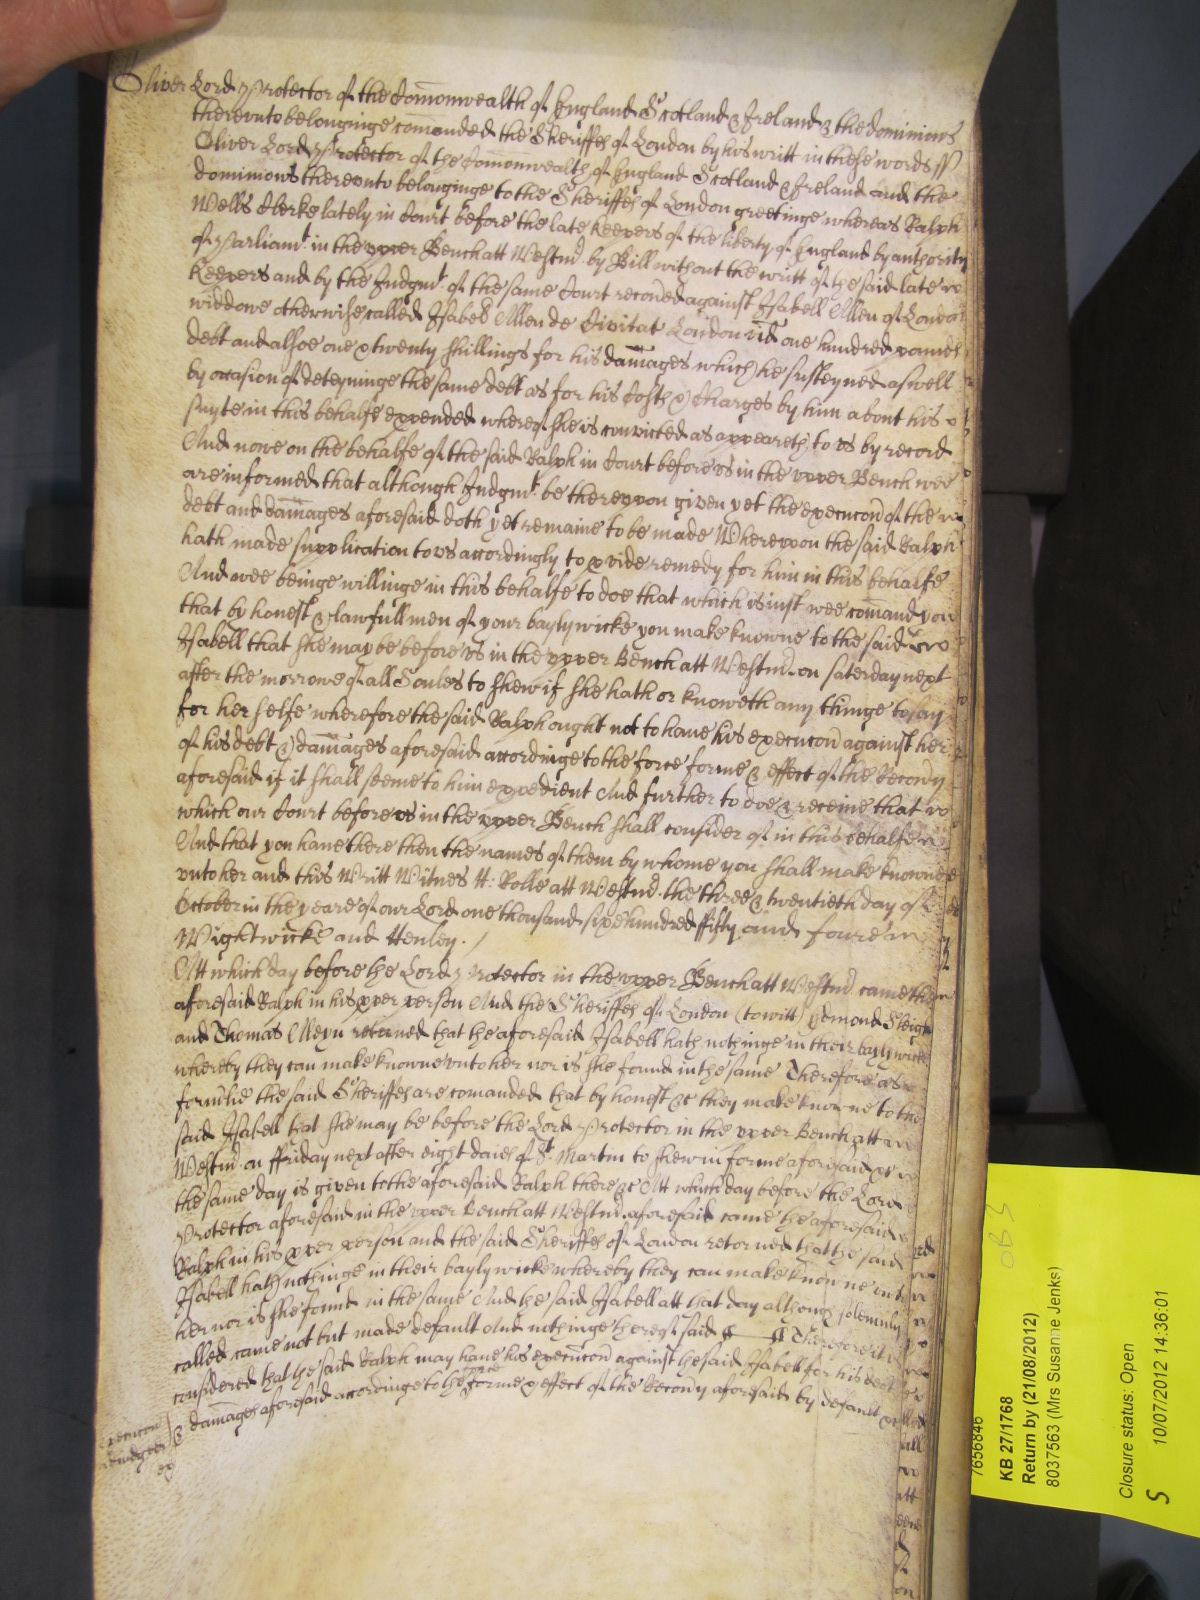 Oliver Lord Protector of the Comonwealth of England Scotland & Ireland & the dominions
thereunto belonginge comanded the Sheriffes of London by his writt in these words ss
Oliver Lord Protector of the Comonwealth of England Scotland & Ireland and the
dominions thereunto belonginge to the Sheriffes of London greetinge whereas Ralph
Wells Clerke lately in Court before the late Keepers of the liberty of England by authority
of Parliamt in the upper Bench att Westmr by Bill without the writt of the said late
Keepers and by the Judgmt of the same Court recovered against Isabell Allen of London
widdowe otherwise called Isabell Allen de Civitat London vid one hundred pounds
debt and alsoe one & twenty shillings for his damages which he susteyned aswell
by occasion of deteyninge the same debt as for his Costs & Charges by him about his
suyte in this behalfe expended whereof she is convicted as appeareth to us by record
And nowe on the behalfe of the said Ralph in Court before us in the upper Bench wee
are informed that although Judgmt be thereupon given yet the execucon of the
debt and damages aforesaid doth yet remaine to be made Whereupon the said Ralph
hath made supplication to us accordingly to pvide remedy for him in this behalfe
And wee beinge willinge in this behalfe to doe that which is just wee comand you
that by honest & lawfull men of your baylywicke you make knowne to the said
Isabell that she may be before us in the upper Bench att Westmr on saterday next
after the morrowe of all Soules to shew if she hath or knoweth any thinge to say
for her selfe wherefore the said Ralph ought not to have his execucon against her
of his debt & damages aforesaid accordinge to the force forme & effect of the Recovy
aforesaid if it shall seeme to him expedient And further to doe & receive that
which our Court before us in the upper Bench shall consider of in this behalfe
And that you have there then the names of them by whome you shall make knowne
unto her and this Writt Witnes H: Rolle att Westmr the three & twentieth day of
October in the yeare of our Lord one thousand sixe hundred fifty and foure
Wightwicke and Henley.
Att which day before the Lord Protector in the upper Bench att Westmr came the
aforesaid Ralph in his pper person And the Sheriffes of London (to witt) Edmond Sleigh
and Thomas Aleyn returned that the aforesaid Isabell hath nothinge in their baylywicke
whereby they can make knowne unto her nor is she found in the same Therefore as
formlie the said Sheriffes are comanded that by honest &c they make knowne to the
said Isabell that she may be before the Lord Protector in the upper Bench att
Westmr on ffriday next after eight daies of St. Martin to shew in forme aforesaid &c
the same day is given to the aforesaid Ralph there &c Att which day before the Lord
Protector aforesaid in the upper Bench att Westmr aforesaid came the aforesaid
Ralph in his pper person and the said Sheriffes of London returned that the said
Isabell hath nothinge in their baylywicke whereby they can make knowne unto
her nor is she found in the same And the said Isabell att that day although solemnly
called came not but made default And nothinge thereof said Therefore it is
considered that the said Ralph may have his execucon against the said Isabell for his debt
& damages aforesaid accordinge to the force forme & effect of the Recovy aforesaid by default &c
7656846
KB 27/1768
Return by (21/08/2012)
8037563 (Mrs Susanne Jenks)
Closure status: Open
S 10/07/2012 14:36:01